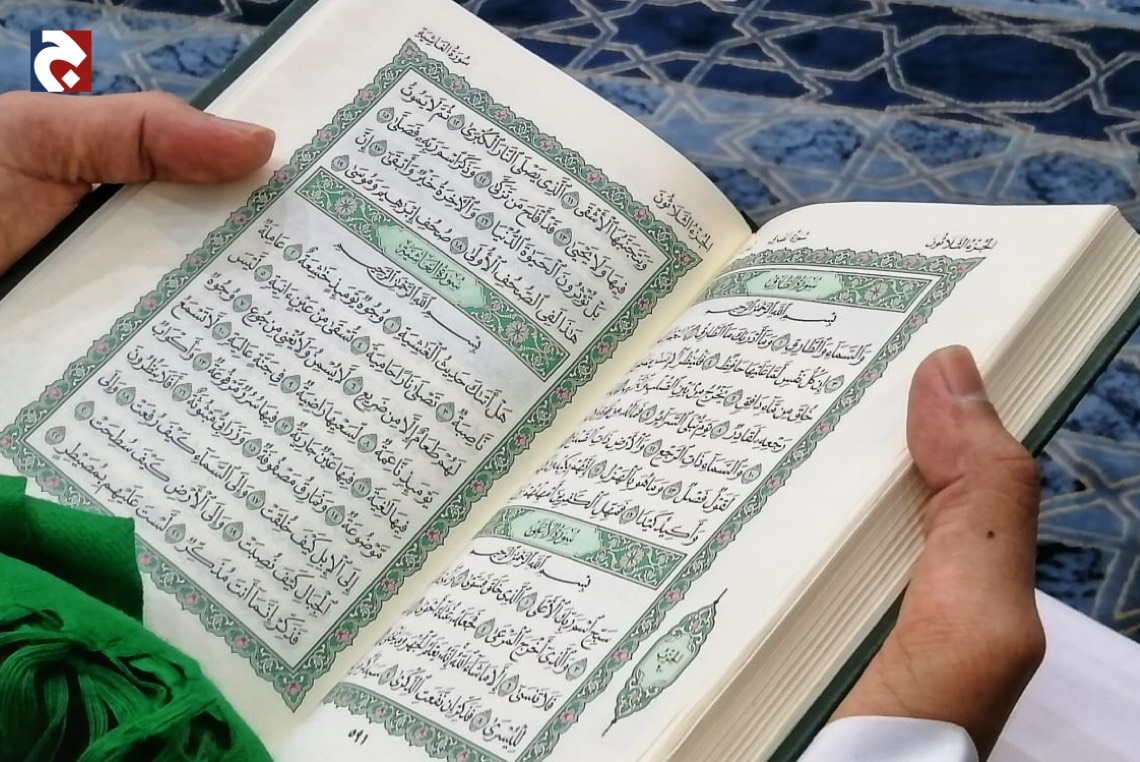 الجزء الثلاثون
سورة الطارق
بِسْمِ اللَّهِ الرَّحْمَٰنِ الرَّحِيمِ
وَالسَّمَاءِ وَالطَّارِقِ ١ وَمَا أَدْرَاكَ مَا الطَّارِقُ ٢
٣ إِن كُلُّ نَفْسٍ لَّمَّا عَلَيْهَا حَافِظٌ ٤ فَلْيَنظُرِ الْإِنسَانُ
خُلِقَ مِن مَّاءٍ دَافِقٍ ٦ يَخْرُجُ مِن بَيْنِ الصُّلْبِ
رَجْعِهِ لَقَادِرٌ ٨ يَوْمَ تُبْلَى السَّرَائِرُ ٩ فَمَا لَهُ
١٠ وَالسَّمَاءِ ذَاتِ الرَّجْعِ ١١ وَالْأَرْضِ ذَاتِ
لَقَوْلٌ فَصْلٌ ١٣ وَمَا هُوَ بِالْهَزْلِ ١٤ إِنَّهُمْ يَكِيدُونَ
وَأَكِيدُ كَيْدًا ١٦ فَمَهِّلِ الْكَافِرِينَ أَمْهِلْهُمْ
سورة الأعلى
بِسْمِ اللَّهِ الرَّحْمَٰنِ الرَّحِيمِ
سَبِّحِ اسْمَ رَبِّكَ الْأَعْلَى ١ الَّذِي خَلَقَ فَسَوَّىٰ ٢
٣ وَالَّذِي أَخْرَجَ الْمَرْعَىٰ ٤ فَجَعَلَهُ غُثَاءً أَحْوَىٰ ٥
فَلَا تَنسَىٰ ٦ إِلَّا مَا شَاءَ اللَّهُ إِنَّهُ يَعْلَمُ الْجَهْرَ وَمَا
لِلْيُسْرَىٰ ٨ فَذَكِّرْ إِن نَّفَعَتِ الذِّكْرَىٰ ٩ سَيَذَّكَّرُ
الحزب
٥٩١
الجزء الثلاثون
سورة الغاشية
وَيَتَجَنَّبُهَا الْأَشْقَى ١١ الَّذِي يَصْلَى النَّارَ الْكُبْرَىٰ ١٢ ثُمَّ لَا يَمُوتُ
فِيهَا وَلَا يَحْيَىٰ ١٣ قَدْ أَفْلَحَ مَن تَزَكَّىٰ ١٤ وَذَكَرَ اسْمَ رَبِّهِ فَصَلَّىٰ ١٥
بَلْ تُؤْثِرُونَ الْحَيَاةَ الدُّنْيَا ١٦ وَالْآخِرَةُ خَيْرٌ وَأَبْقَىٰ ١٧ إِنَّ
هَٰذَا لَفِي الصُّحُفِ الْأُولَىٰ ١٨ صُحُفِ إِبْرَاهِيمَ وَمُوسَىٰ ١٩
سورة الغاشية
بِسْمِ اللَّهِ الرَّحْمَٰنِ الرَّحِيمِ
هَلْ أَتَاكَ حَدِيثُ الْغَاشِيَةِ ١ وُجُوهٌ يَوْمَئِذٍ خَاشِعَةٌ ٢ عَامِلَةٌ
نَّاصِبَةٌ ٣ تَصْلَىٰ نَارًا حَامِيَةً ٤ تُسْقَىٰ مِنْ عَيْنٍ آنِيَةٍ ٥ لَّيْسَ
لَهُمْ طَعَامٌ إِلَّا مِن ضَرِيعٍ ٦ لَّا يُسْمِنُ وَلَا يُغْنِي مِن جُوعٍ ٧ وُجُوهٌ
يَوْمَئِذٍ نَّاعِمَةٌ ٨ لِّسَعْيِهَا رَاضِيَةٌ ٩ فِي جَنَّةٍ عَالِيَةٍ ١٠ لَّا تَسْمَعُ
فِيهَا لَاغِيَةً ١١ فِيهَا عَيْنٌ جَارِيَةٌ ١٢ فِيهَا سُرُرٌ مَّرْفُوعَةٌ ١٣ وَأَكْوَابٌ
مَّوْضُوعَةٌ ١٤ وَنَمَارِقُ مَصْفُوفَةٌ ١٥ وَزَرَابِيُّ مَبْثُوثَةٌ ١٦ أَفَلَا يَنظُرُونَ
إِلَى الْإِبِلِ كَيْفَ خُلِقَتْ ١٧ وَإِلَى السَّمَاءِ كَيْفَ رُفِعَتْ ١٨ وَإِلَى
الْجِبَالِ كَيْفَ نُصِبَتْ ١٩ وَإِلَى الْأَرْضِ كَيْفَ سُطِحَتْ ٢٠
فَذَكِّرْ إِنَّمَا أَنتَ مُذَكِّرٌ ٢١ لَّسْتَ عَلَيْهِم بِمُصَيْطِرٍ ٢٢